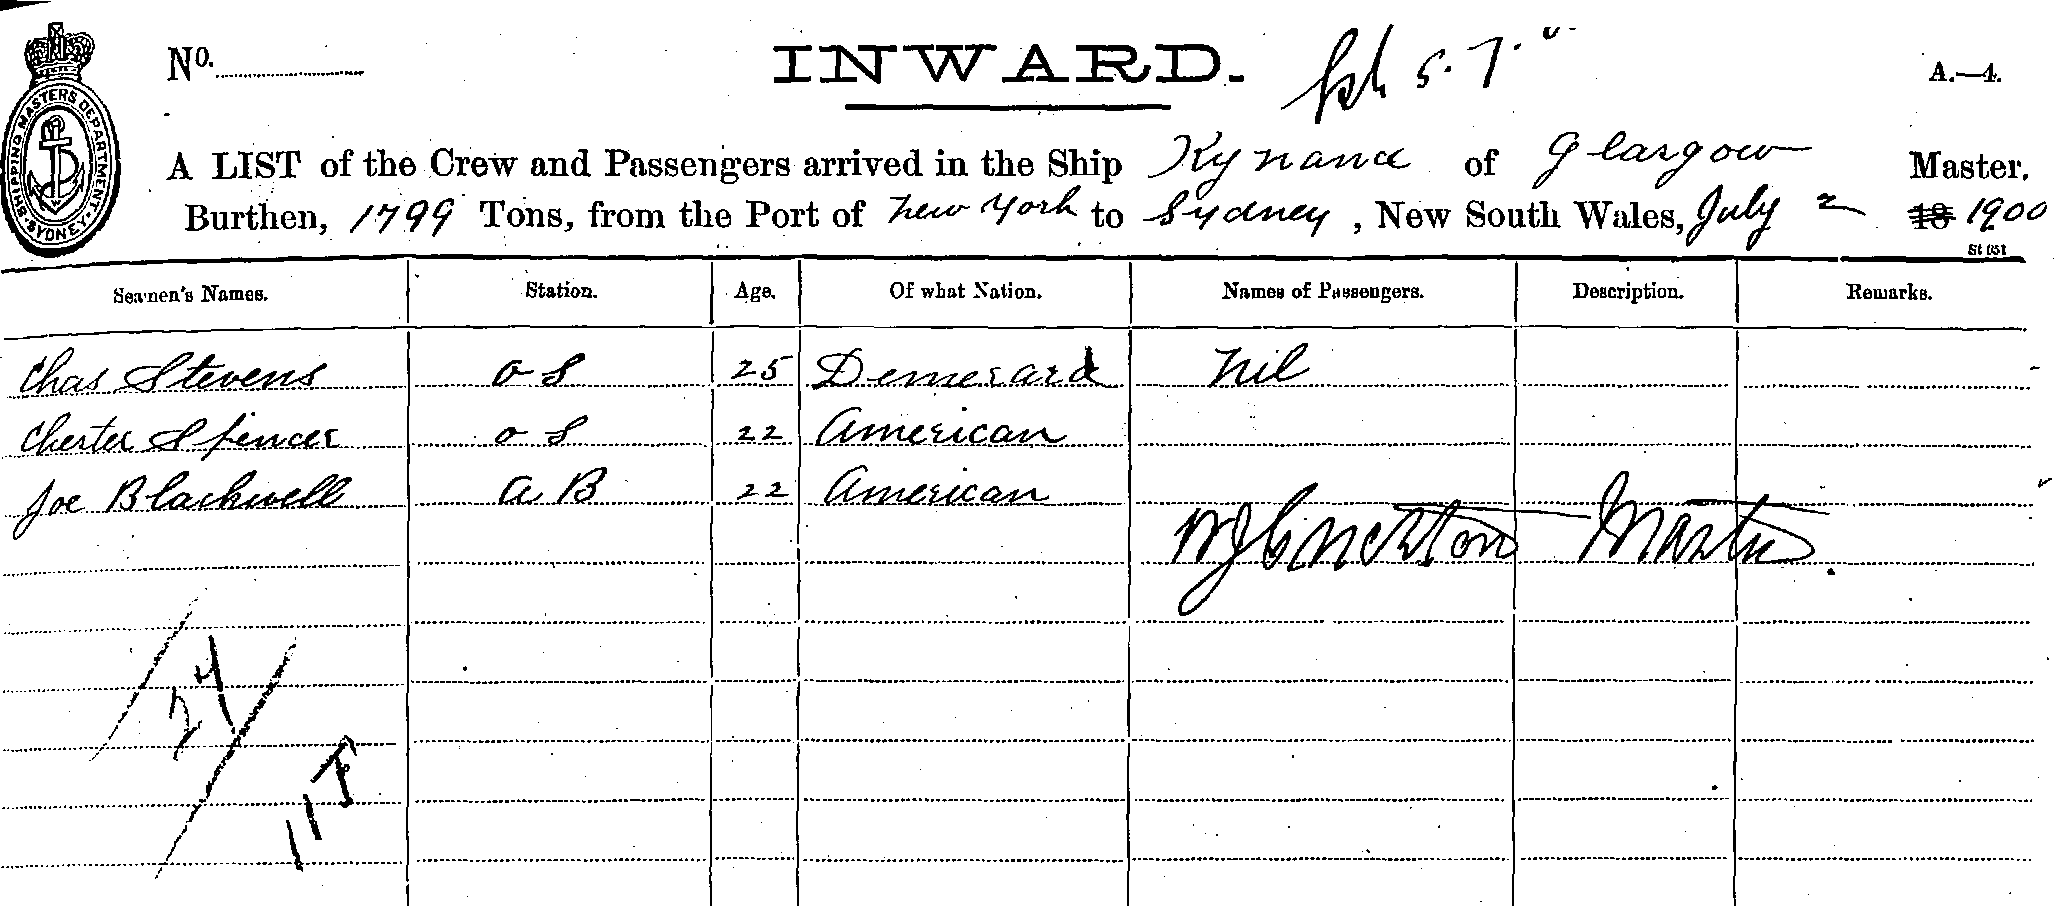 SHIPPING MASTERS DEPARTMENT
SYDNEY
No.
INWARD.
A.—4.
A LIST of the Crew and Passengers arrived in the Ship Kynance of Glasgow Master,
Burthen, 1799 Tons, from the Port of New York to Sydney, New South Wales, July 2 18 1900
Seamen's Names. Station. Age. Of what Nation. Names of Passengers. Description. Remarks.
Chas Stevens O S 25 Nil
Chester Spencer O S 22 American
Joe Blackwell A B 22 American
Master
24